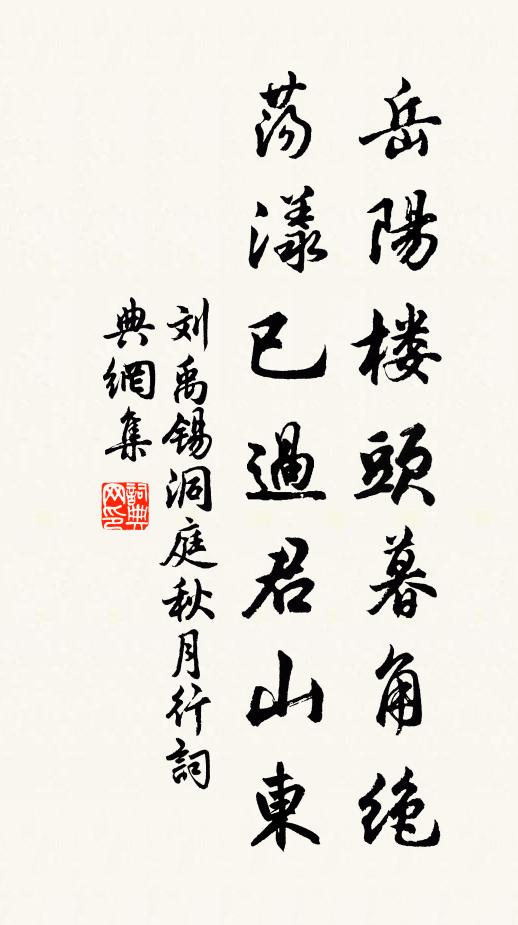 岳陽楼頭暮角絶
荡漾已過君山東
刘禹锡洞庭秋月行詞
典網集
詞典网印